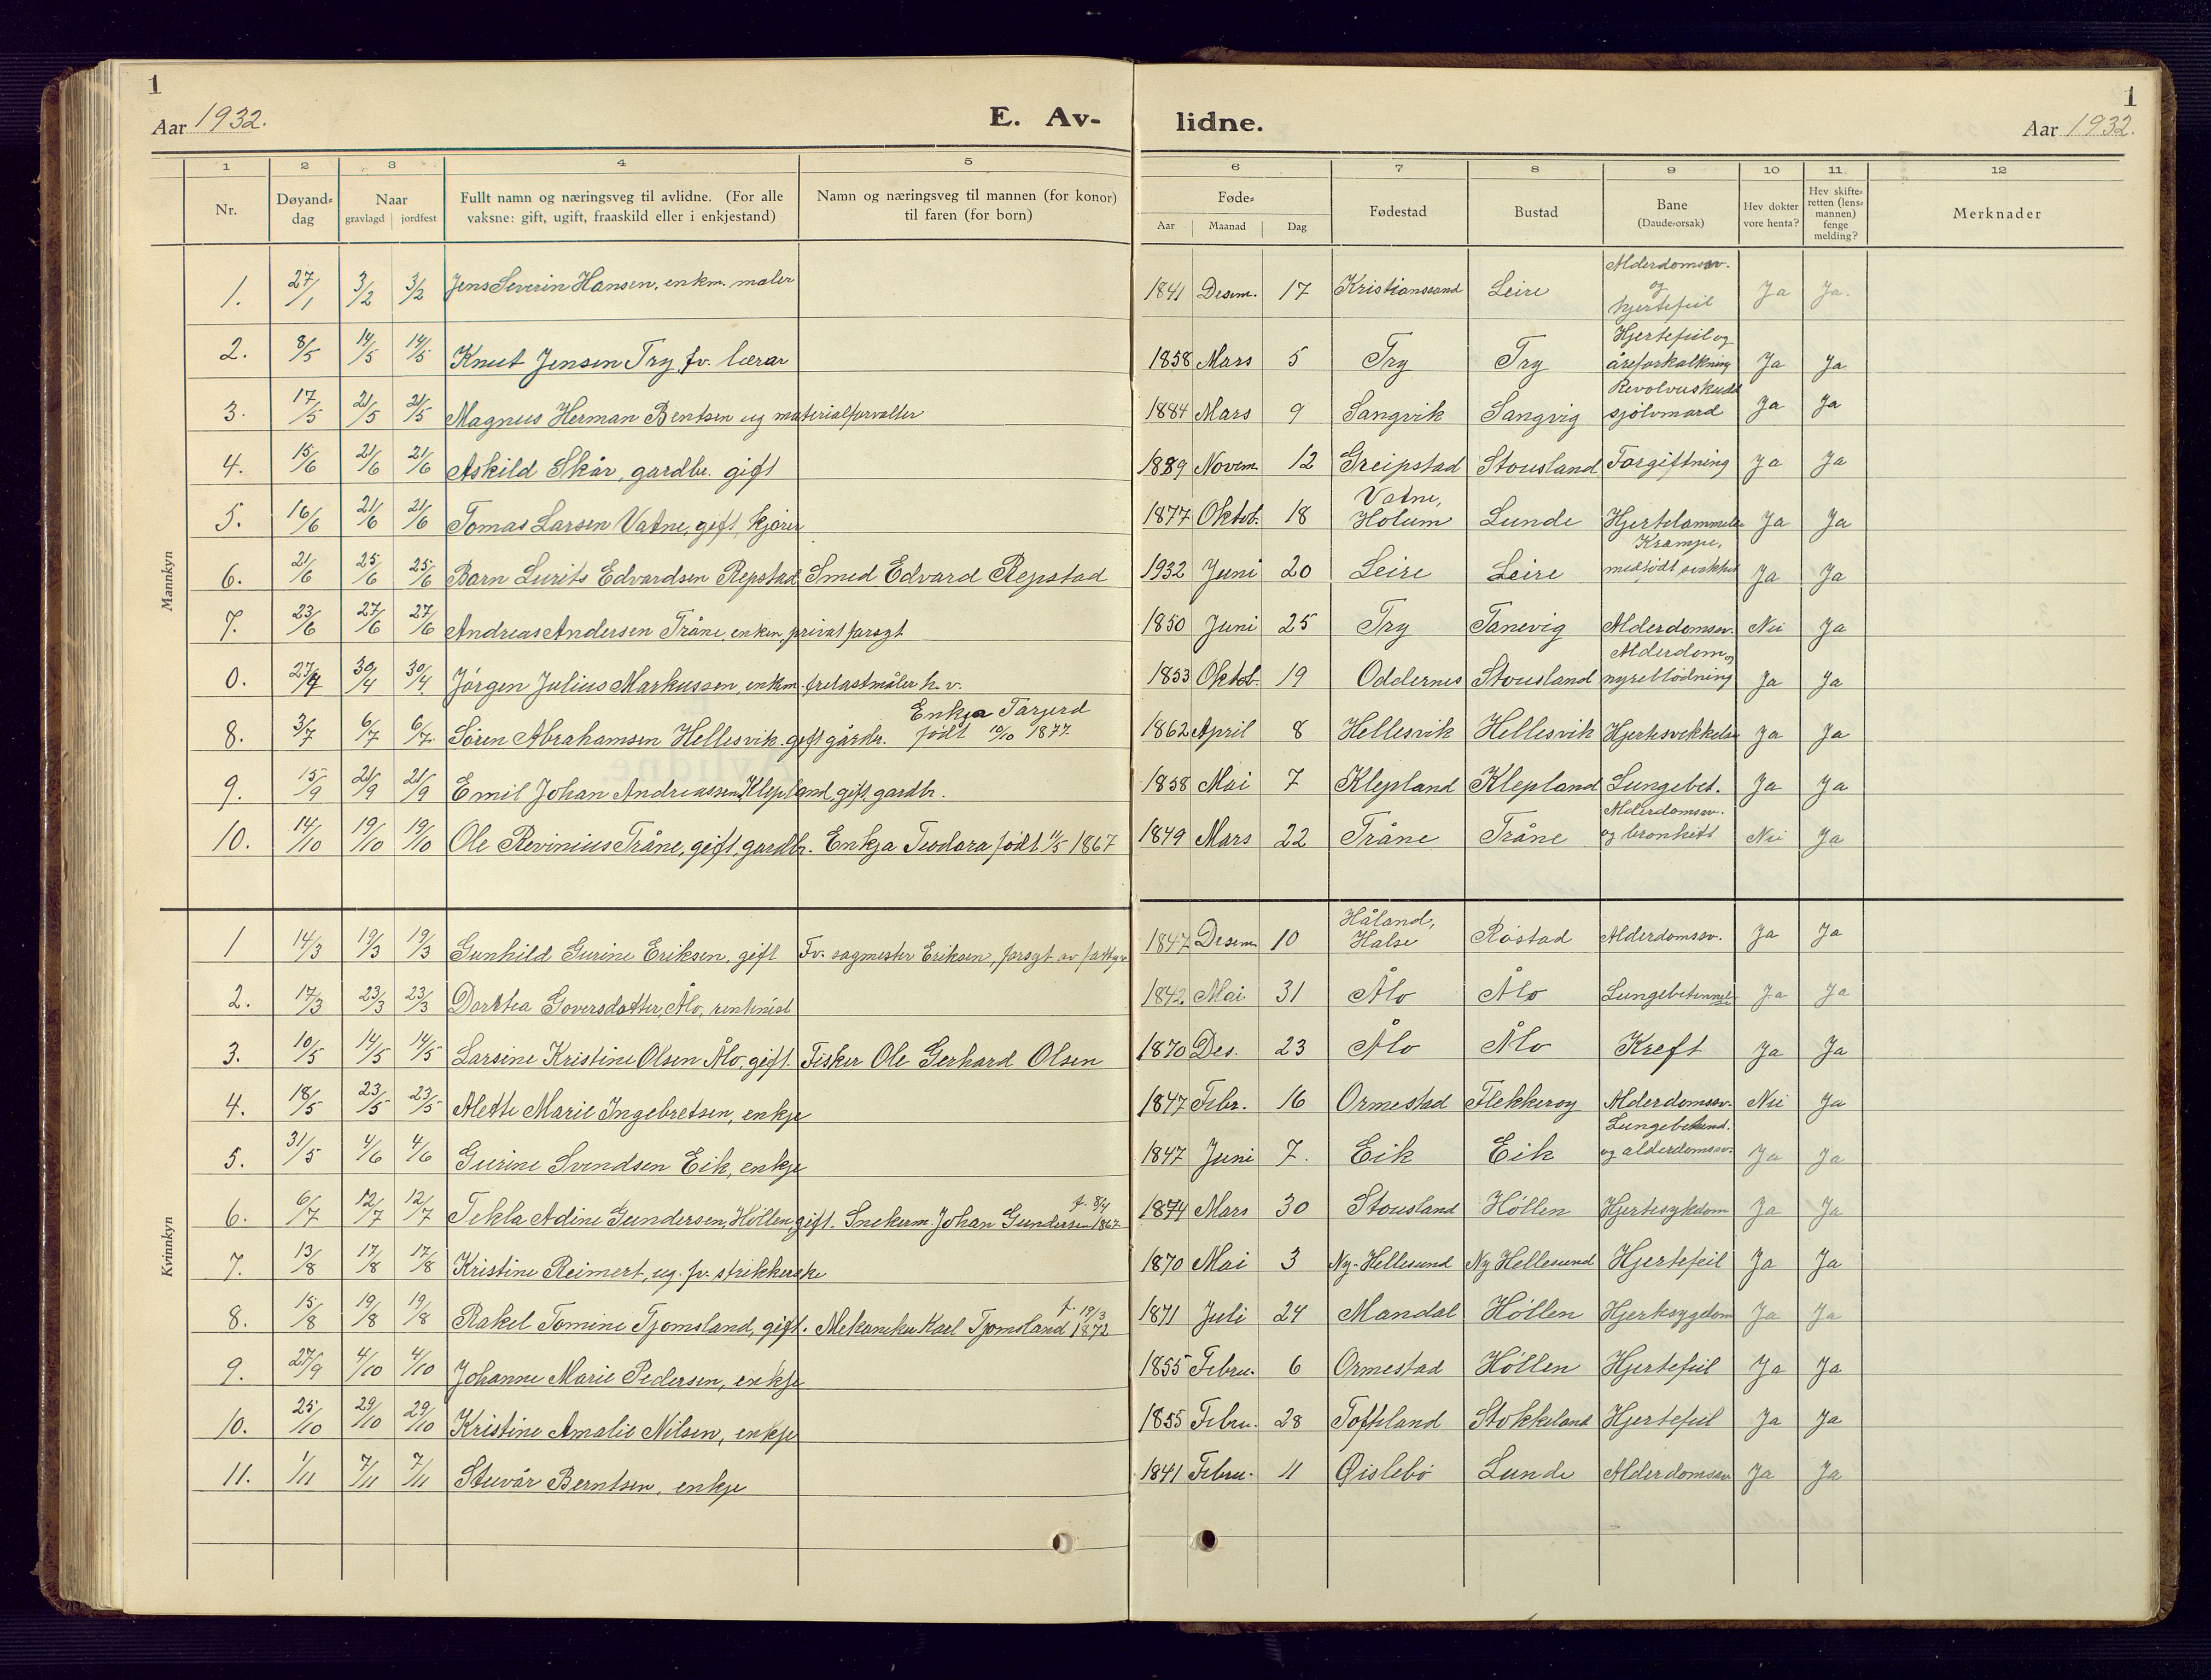 1
Aar 1932. E. Av- lidne. Aar 1932.
1
1 2 3 4 5 6 7 8 9 10 11 12
Nr. Døyand-dag Naar gravlagd jordfest Fullt namn og næringsveg til avlidne. (For alle vaksne: gift, ugift, fraaskild eller i enkjestand) Namn og næringsveg til mannen (for konor) til faren (for born) Føde- Aar Maanad Dag Fødestad Bustad Bane (Daude-orsak) Hev dokter vore henta? Hev skifte-retten (lens-mannen) fenge melding? Merknader
Mannkyn
1. 27/1 3/2 3/2 Jens Severin Hansen, enkm. maler 1841 Desem. 17 Kristianssand Leire Alderdomssv. og hjertefeil Ja Ja.
2. 8/5 14/5 14/5 Knut Jensen Try fv. lærar 1858 Mars 5 Try Try Hjertefeil og åreforkalkning Ja Ja
3. 17/5 21/5 21/5 Magnus Herman Bentsen ug materialforvalter 1884 Mars 9 Sangvik Sangvig Revolverskudd sjølvmord Ja Ja
4. 15/6 21/6 21/6 Askild Skår, gardbr. gift 1889 Novem. 12 Greipstad Stousland Forgiftning Ja Ja
5. 16/6 21/6 21/6 Tomas Larsen Vatne, gift, kjører 1877 Oktob. 18 Vatne, Holum Lunde Hjertelammelse Ja Ja
6. 21/6 25/6 25/6 Barn Lurits Edvardsen Repstad Smed Edvard Repstad 1932 Juni 20 Leire Leire Krampe, medfødt svakhet Ja Ja
7. 23/6 27/6 27/6 Andreas Andersen Tråne, enkm, privat forsgt 1850 Juni 25 Try Tanevig Alderdomssv. Nei Ja
0. 27/4 30/4 30/4 Jørgen Julius Markussen, enkm. trelastmåler h. v. 1853 Oktob. 19 Oddernes Stousland Alderdom og nyreblødning Ja Ja
8. 3/7 6/7 6/7. Søren Abrahamsen Hellesvik. gift gårdr. Enkja Targerd født 10/10 1877. 1862 April 8 Hellesvik Hellesvik Hjertesvekkelse Ja Ja
9. 15/9 21/9 21/9 Emil Johan Andreassen Klepland, gift, gardbr. 1858 Mai 7 Klepland Klepland Lungebet. Ja Ja
10. 14/10 19/10 19/10 Ole Revinius Tråne, gift, gardbr. Enkja Teodora født 11/5 1867 1849 Mars 22 Tråne Tråne Alderdomssv. og bronkitt Nei Ja
Kvinnkyn
1 14/3 19/3 19/3 Gunhild Gurine Eriksen, gift Fv. sagmester Eriksen, forsgt av fattigv 1847 Desem 10 Håland, Halse Røstad Alderdomssv. Ja Ja
2. 17/3 23/3 23/3 Dortea Goversdatter, Ålo, rentenist 1842. Mai 31 Ålo Ålo Lungebetennelse Ja Ja
3. 10/5 14/5 14/5 Larsine Kristine Olsen Ålo, gift. Fisker Ole Gerhard Olsen 1870 Des. 23 Ålo Ålo Kreft Ja Ja
4. 18/5 23/5 23/5 Alette Marie Ingebretsen, enkje 1847 Febr. 16 Ormestad Flekkerøy Alderdomssv. Nei Ja
5. 31/5 4/6 4/6 Gurine Svendsen Eik, enkje 1847 Juni 7. Eik Eik Lungebetend. og alderdomssv. Ja Ja
6. 6/7 12/7 12/7 Tekla Adine Gundersen, Høllen, gift. Snekerm. Johan Gundersen f. 8/4 1867 1874 Mars 30 Stousland Høllen Hjertesykdom Ja Ja
7. 13/8 17/8 17/8 Kristine Reimert, ug. fv. strikkerske 1870 Mai 3 Ny-Hellesund Ny Hellesund Hjertefeil Ja Ja
8. 15/8 19/8 19/8 Rakel Tomine Tjomsland, gift. Mekaneker Karl Tjomsland f. 19/3 1872 1871 Juli 24 Mandal Høllen Hjertesygdom Ja Ja
9. 27/9 4/10 4/10 Johanne Marie Pedersen, enkje 1855 Febru. 6 Ormestad Høllen Hjertefeil Ja Ja
10. 25/10 29/10 29/10 Kristine Amalie Nilsen, enkje 1855 Febru. 28 Tofteland Stokkeland Hjertefeil Ja Ja
11. 1/11 7/11 7/11 Stuvår Berntsen, enkje 1841 Febru. 11 Øislebø Lunde Alderdomssv Ja Ja